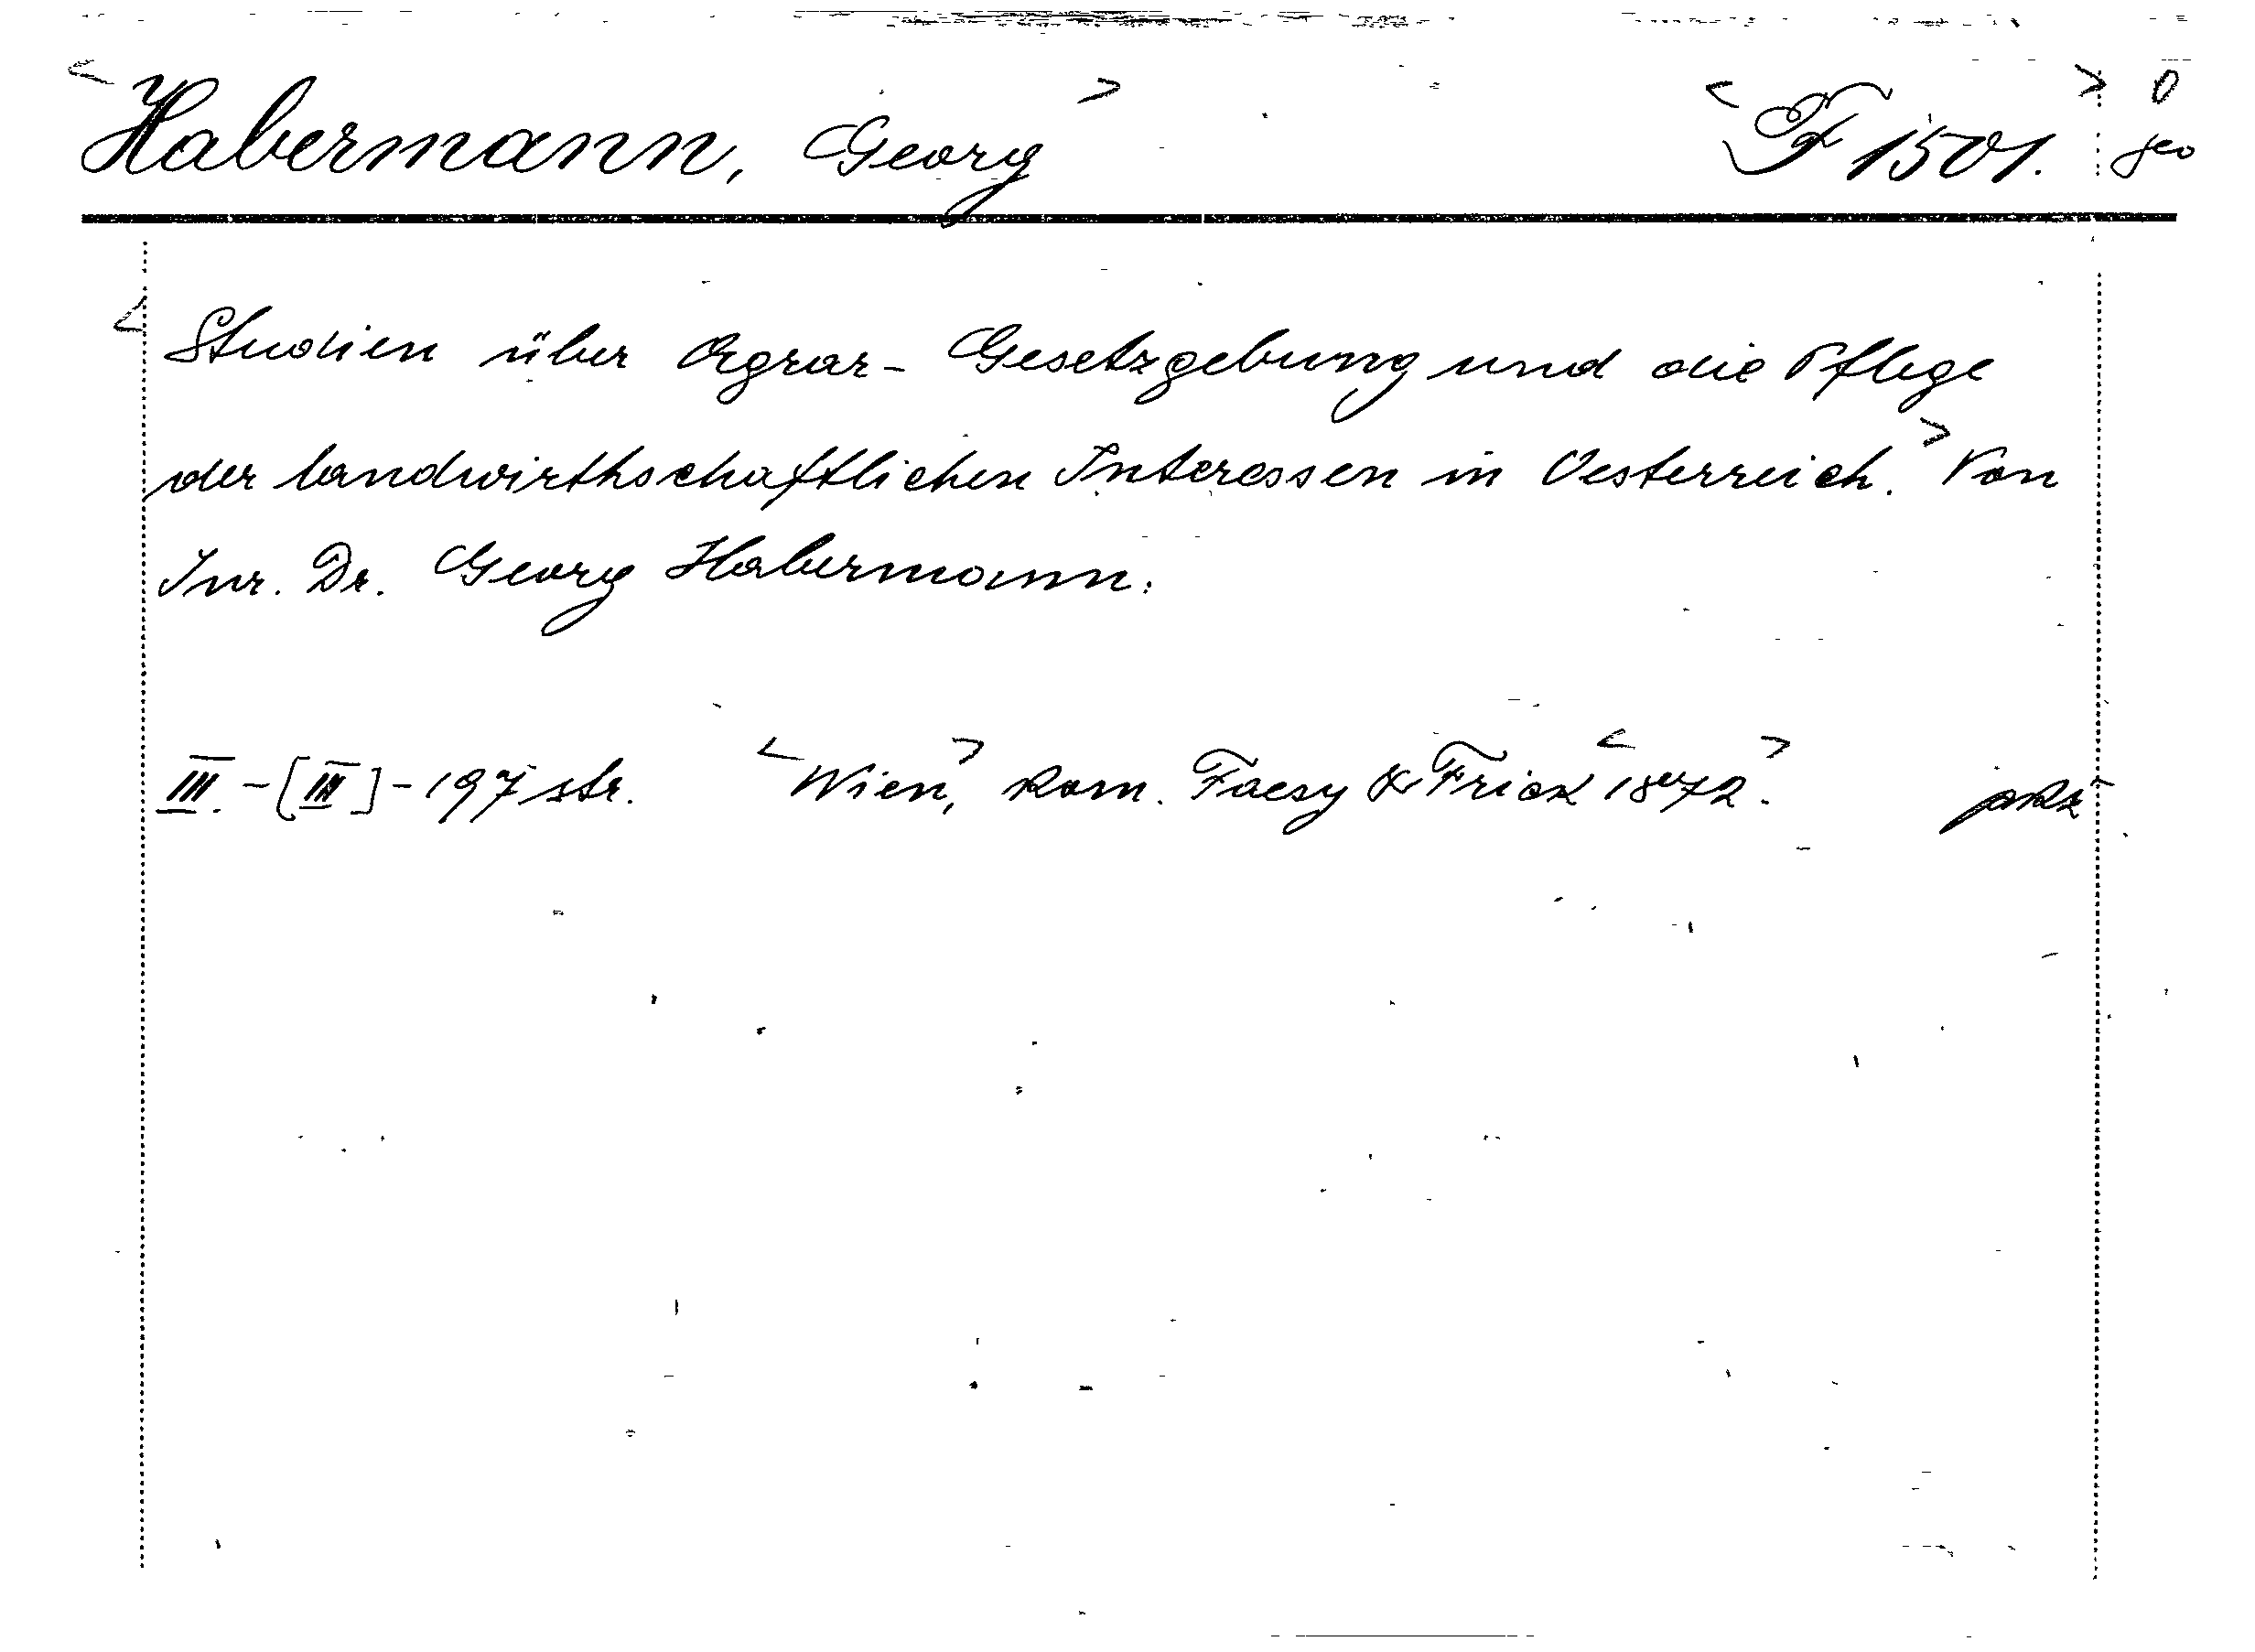 <Habermann, Georg> <F 1501.> 0
geo
<Studien über Agrar-Gesetzgebung und die Pflege
der landwirthschaftlichen Interessen in Oesterreich.> Von
Jur. Dr. Georg Habermann.
III.-[III]-197 str. <Wien,> kom. Faesy & Frick <1872.>